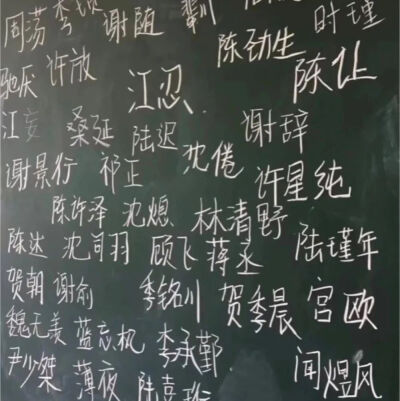 周荡 李埙 谢随
时瑾
驰厌 许放 江忍 陈劲生 陈让
江妄 桑延 陆迟 谢辞
谢景行 祁正 沈倦 许星纯
陈许泽 沈熄 林清野
陈达 沈司羽 顾飞 蒋丞 陆瑾年
贺朝 谢俞 季铭川 贺季晨 宫欧
魏无羡 蓝忘机 李承鄞
尹少桀 薄夜 闻煜风